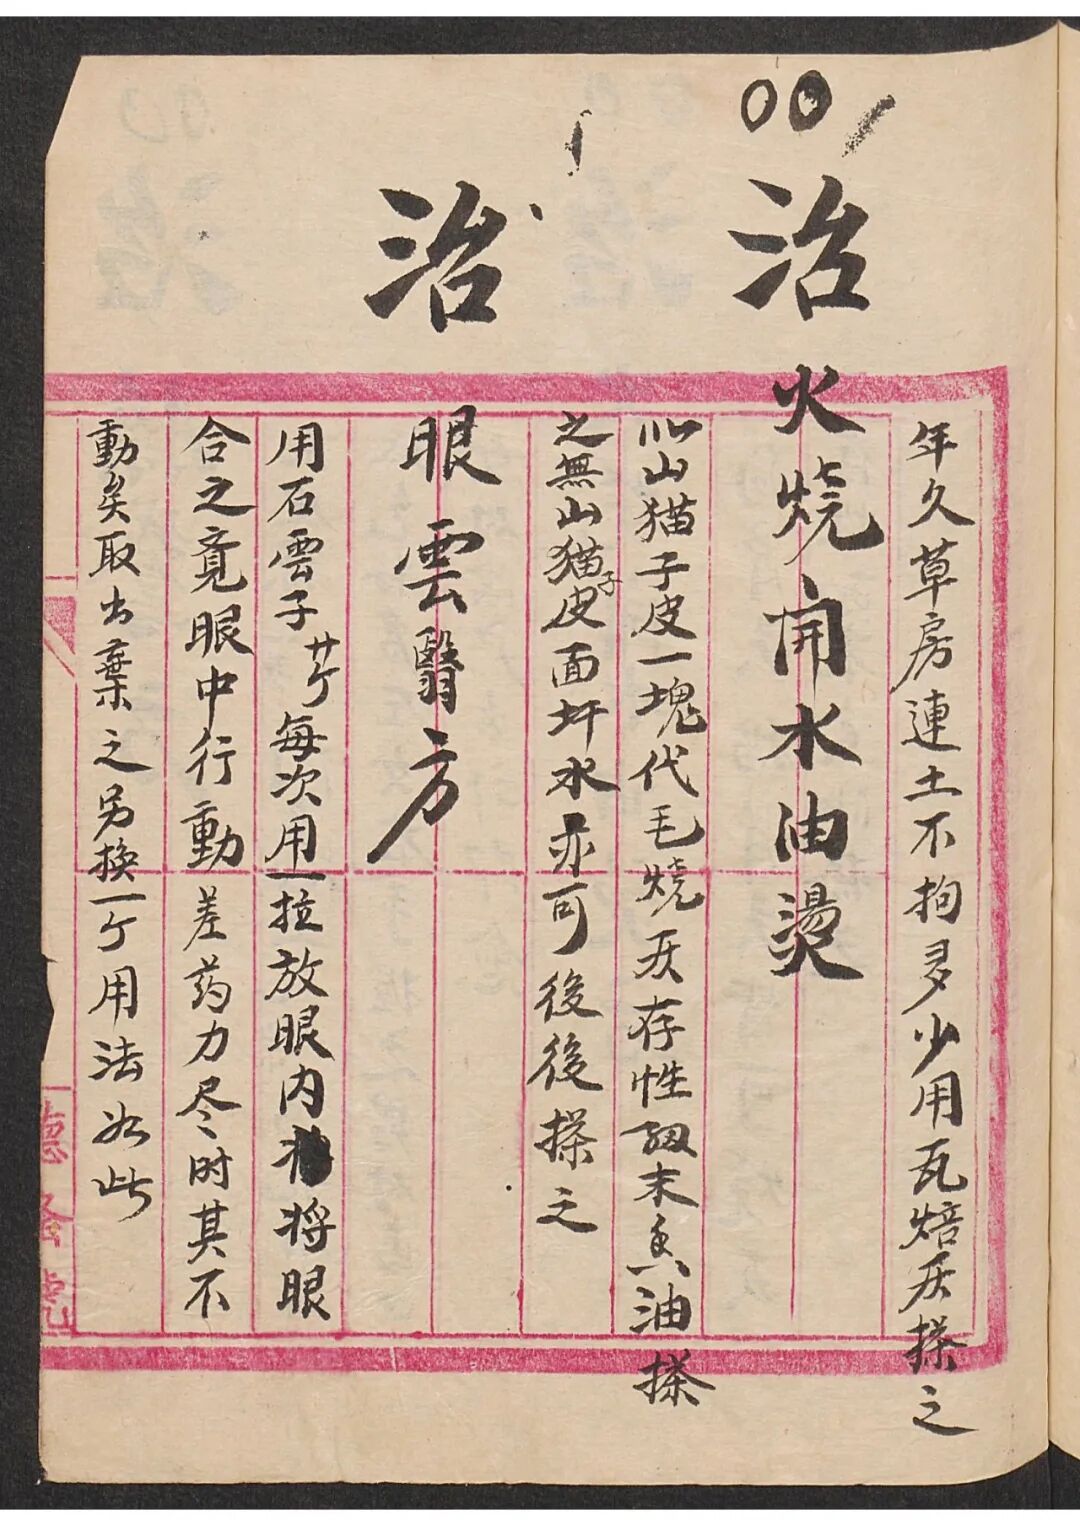 年久草房連土不拘多少用瓦焙灰搽之
治火烧開水油燙
山猫子皮一塊代毛烧灰存性細末香油搽
之無山猫子皮面圢水亦可後後搽之
治眼雲翳方
用石雲子廿个每次用一拉放眼内将眼
合之竟眼中行動差药力尽时其不
動矣取出棄之另換一个用法如此